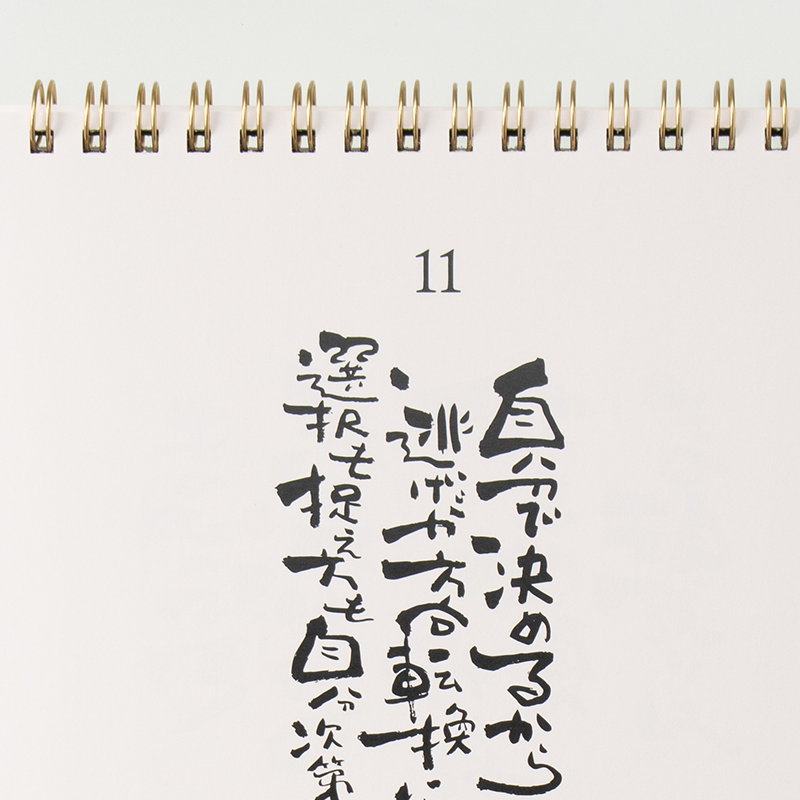 11
自分で決めるから
逃げが方向転換に
選択も捉え方も自分次第